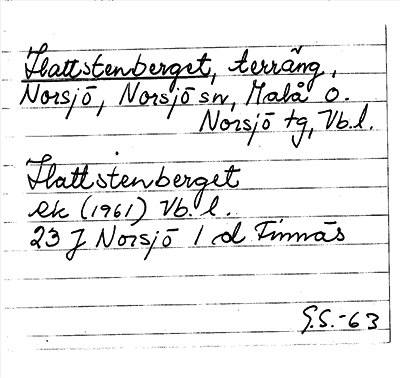 Hattstenberget, terräng,
Norsjö, Norsjö sn, Malå o.
Norsjö tg, Vb.l.
Hattstenberget
ek (1961) Vb. l.
23 J Norsjö 1 d Finnäs
G.S.-63